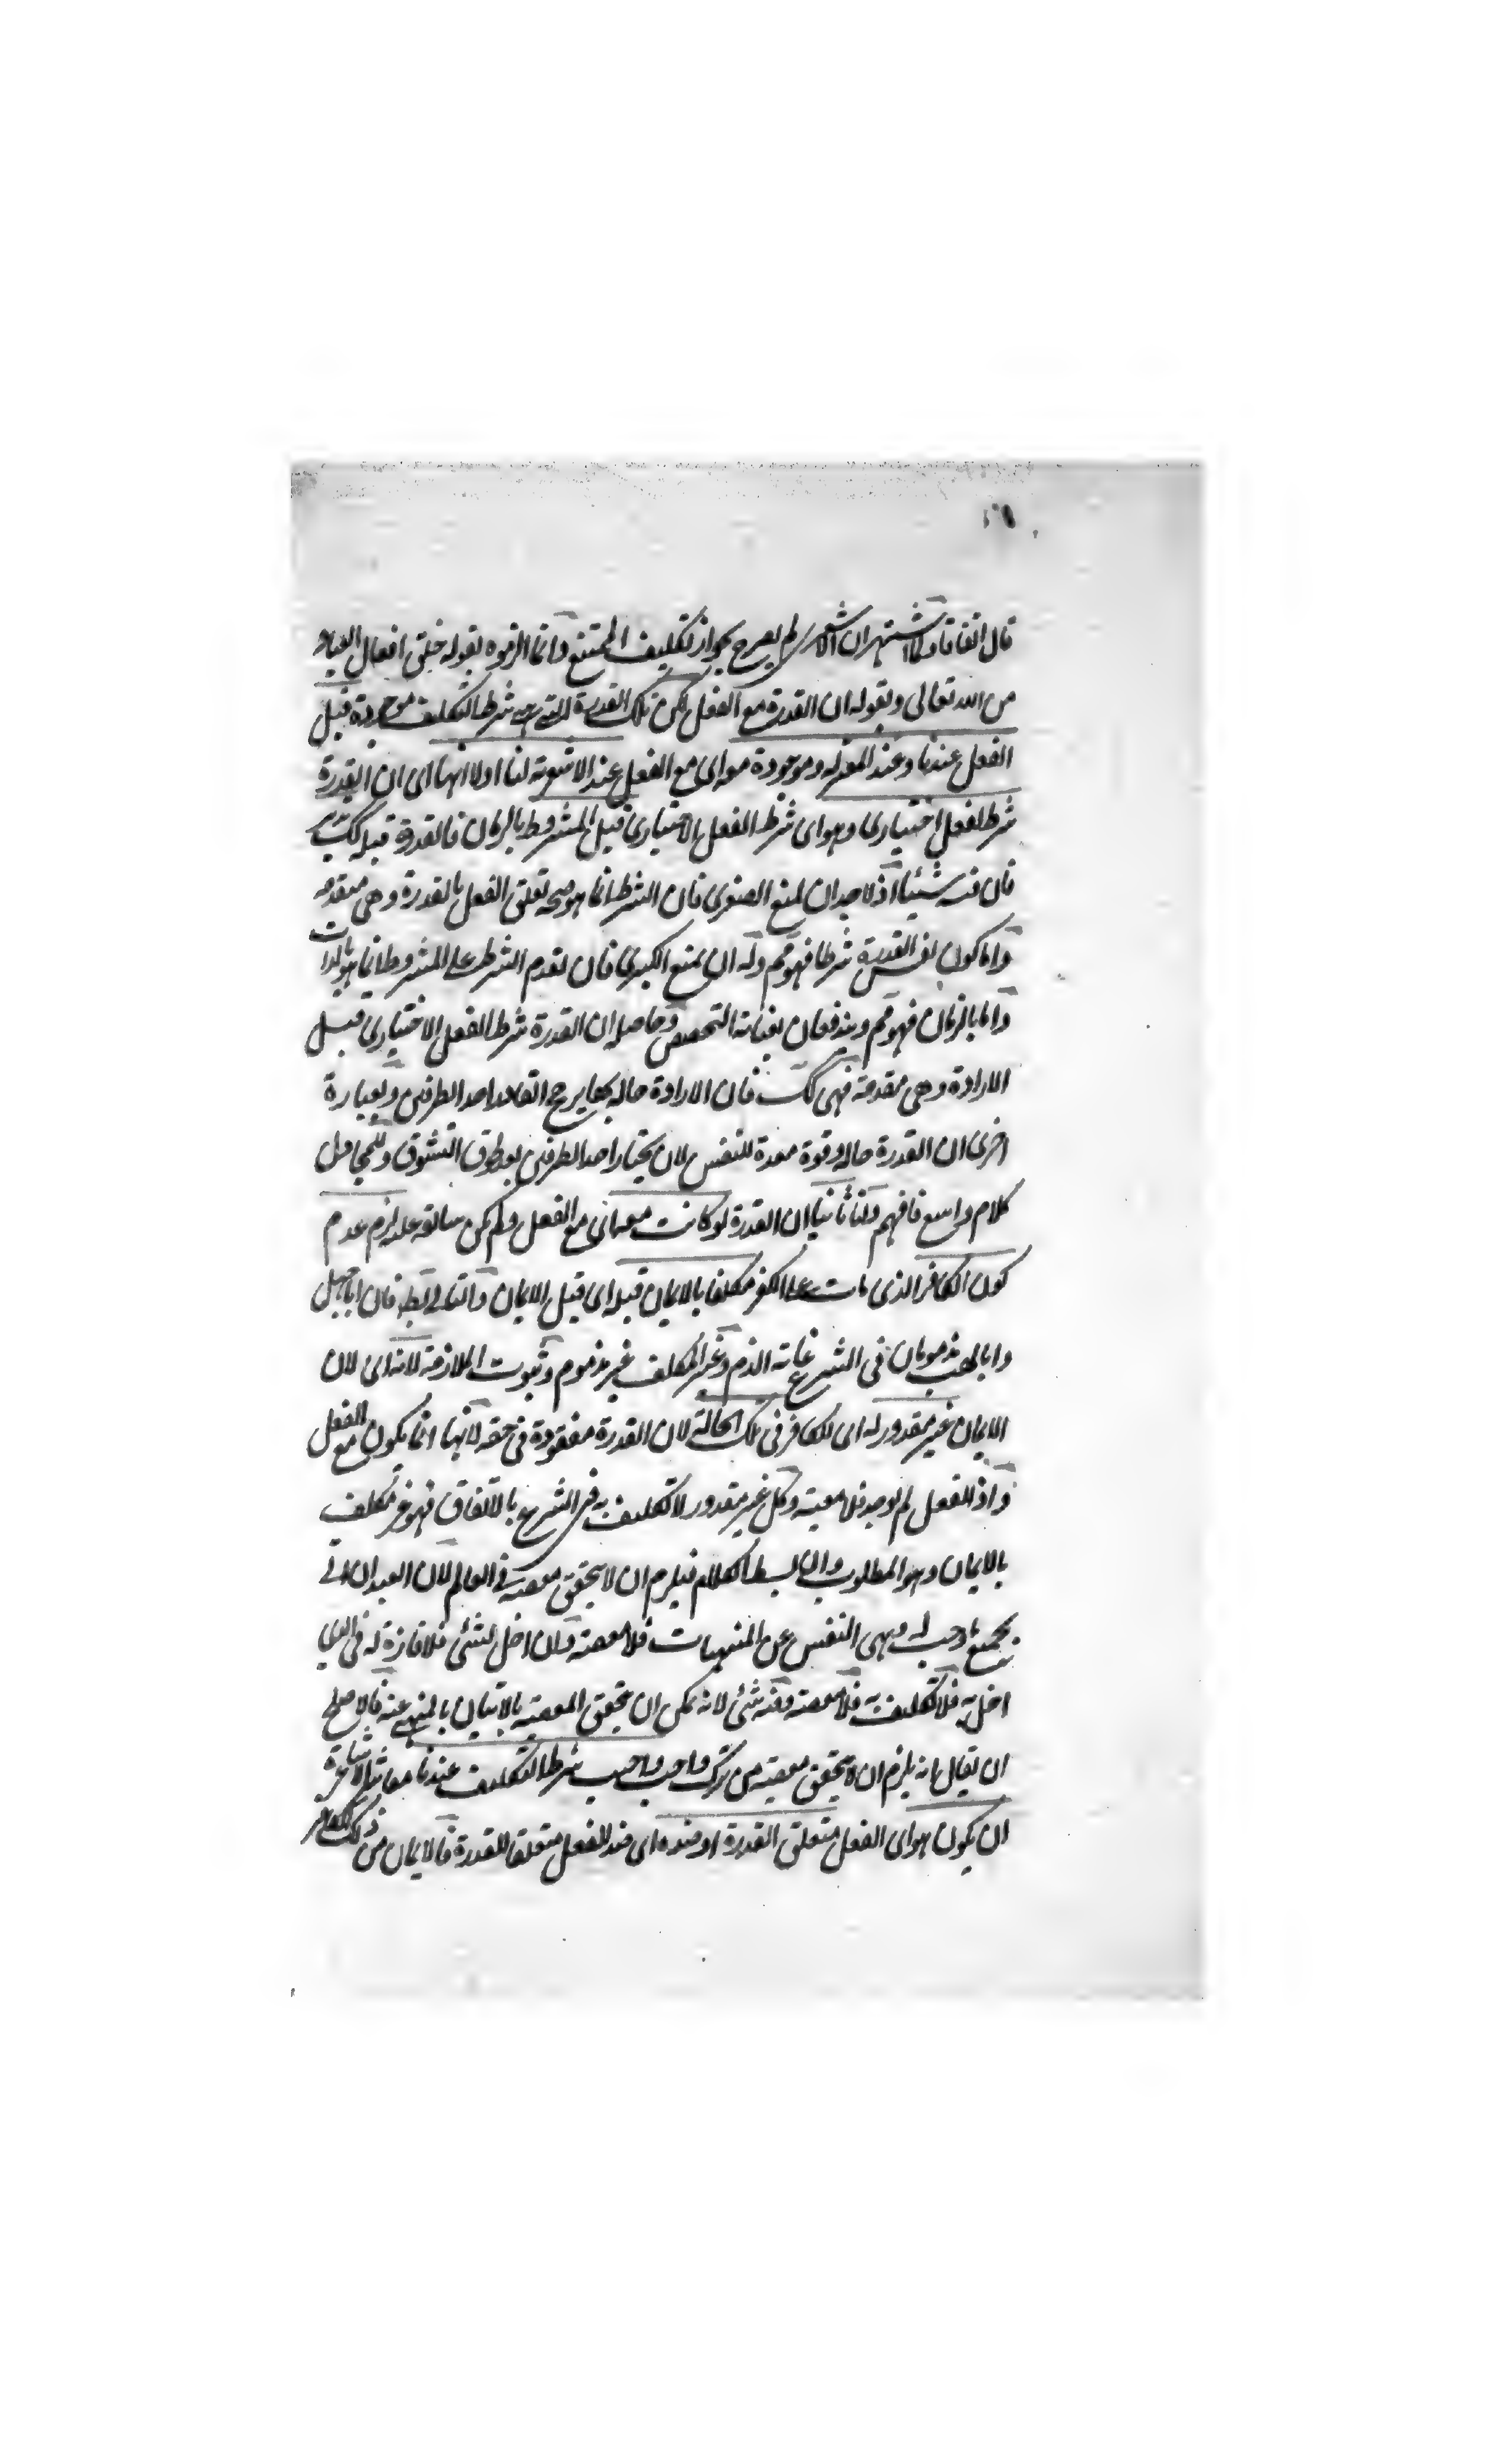 قال اتفاقا ولما اشتهر ان الاشعرى لم يصرح بجواز تكليف الممتنع وانما الزموه بقوله خلق افعال العباد
من الله تعالى وبقوله ان القدرة مع الفعل لكن تلك القدرة التى هى شرط التكليف موجودة قبل
الفعل عندنا وعند المعتزله وموجودة معه اى مع الفعل عند الاشعرية لنا اولا انها اى ان القدرة
شرط لفعل اختيارى وهو اى شرط الفعل الاختيارى قبل المشروط بالزمان فالقدرة قبله كك
فان فيه شيئا اذ لاحد ان يمنع الصغرى فان الشرط انما هو صحة تعلق الفعل بالقدرة وهى متقدمه
واما كون نفس القدرة شرطا فهو مم وله ان يمنع الكبرى فان تقدم الشرط على المشروط انما هو بالذات
واما بالزمان فهو مم ويندفعان بغاية التمحص وحاصله ان القدرة شرط الفعل الاختيارى قبل
الارادة وهى مقدمة فهى كك فان الارادة حاله بها يرجح الفاعل احد الطرفين وبعبارة
اخرى ان القدرة حاله وقوة معدة للنفس لان يختار احد الطرفين بعد التشوق وللمجادل
كلام واسع فافهم ولنا ثانيا ان القدرة لو كانت معه اى مع الفعل ولم يكن سابقة عليه لزم عدم
كون الكافر الذى مات على الكفر مكلفا بالايمان قبله اى قبل الايمان والتالى بط فان ابا جهل
وابا لهب مذمومان فى الشرع غاية الذم وغير المكلف غير مذموم وثبوت الملازمة لانه اى لان
الايمان غير مقدور له اى للكافر فى تلك الحالة لان القدرة مفقودة فى حقه لانها انما يكون مع الفعل
واذ الفعل لم يوجد فلا معية وكل غير مقدور لا تكليف به فى الشرع بالاتفاق فهو غير مكلف
بالايمان وهو المطلوب وان بسط الكلام فيلزم ان لا يتحقق معصية فى العالم لان العبد ان اتى
بجميع ما وجب له ونهى النفس عن المنهيات فلا معصية وان اخل بشئ فلا قدرة له فى الذى
اخل به فلا تكليف به فلا معصية وفيه شئ لانه يمكن ان يتحقق المعصية بالاتيان بالمنهى عنه فالاصلح
ان يقال انه يلزم ان لا يتحقق معصية من ترك واجب واجيب شرط التكليف عندنا معاشر الاشاعرة
ان يكون هو اى الفعل متعلق القدرة او ضده اى ضد الفعل متعلقا للقدرة فالايمان من ذلك الكافر